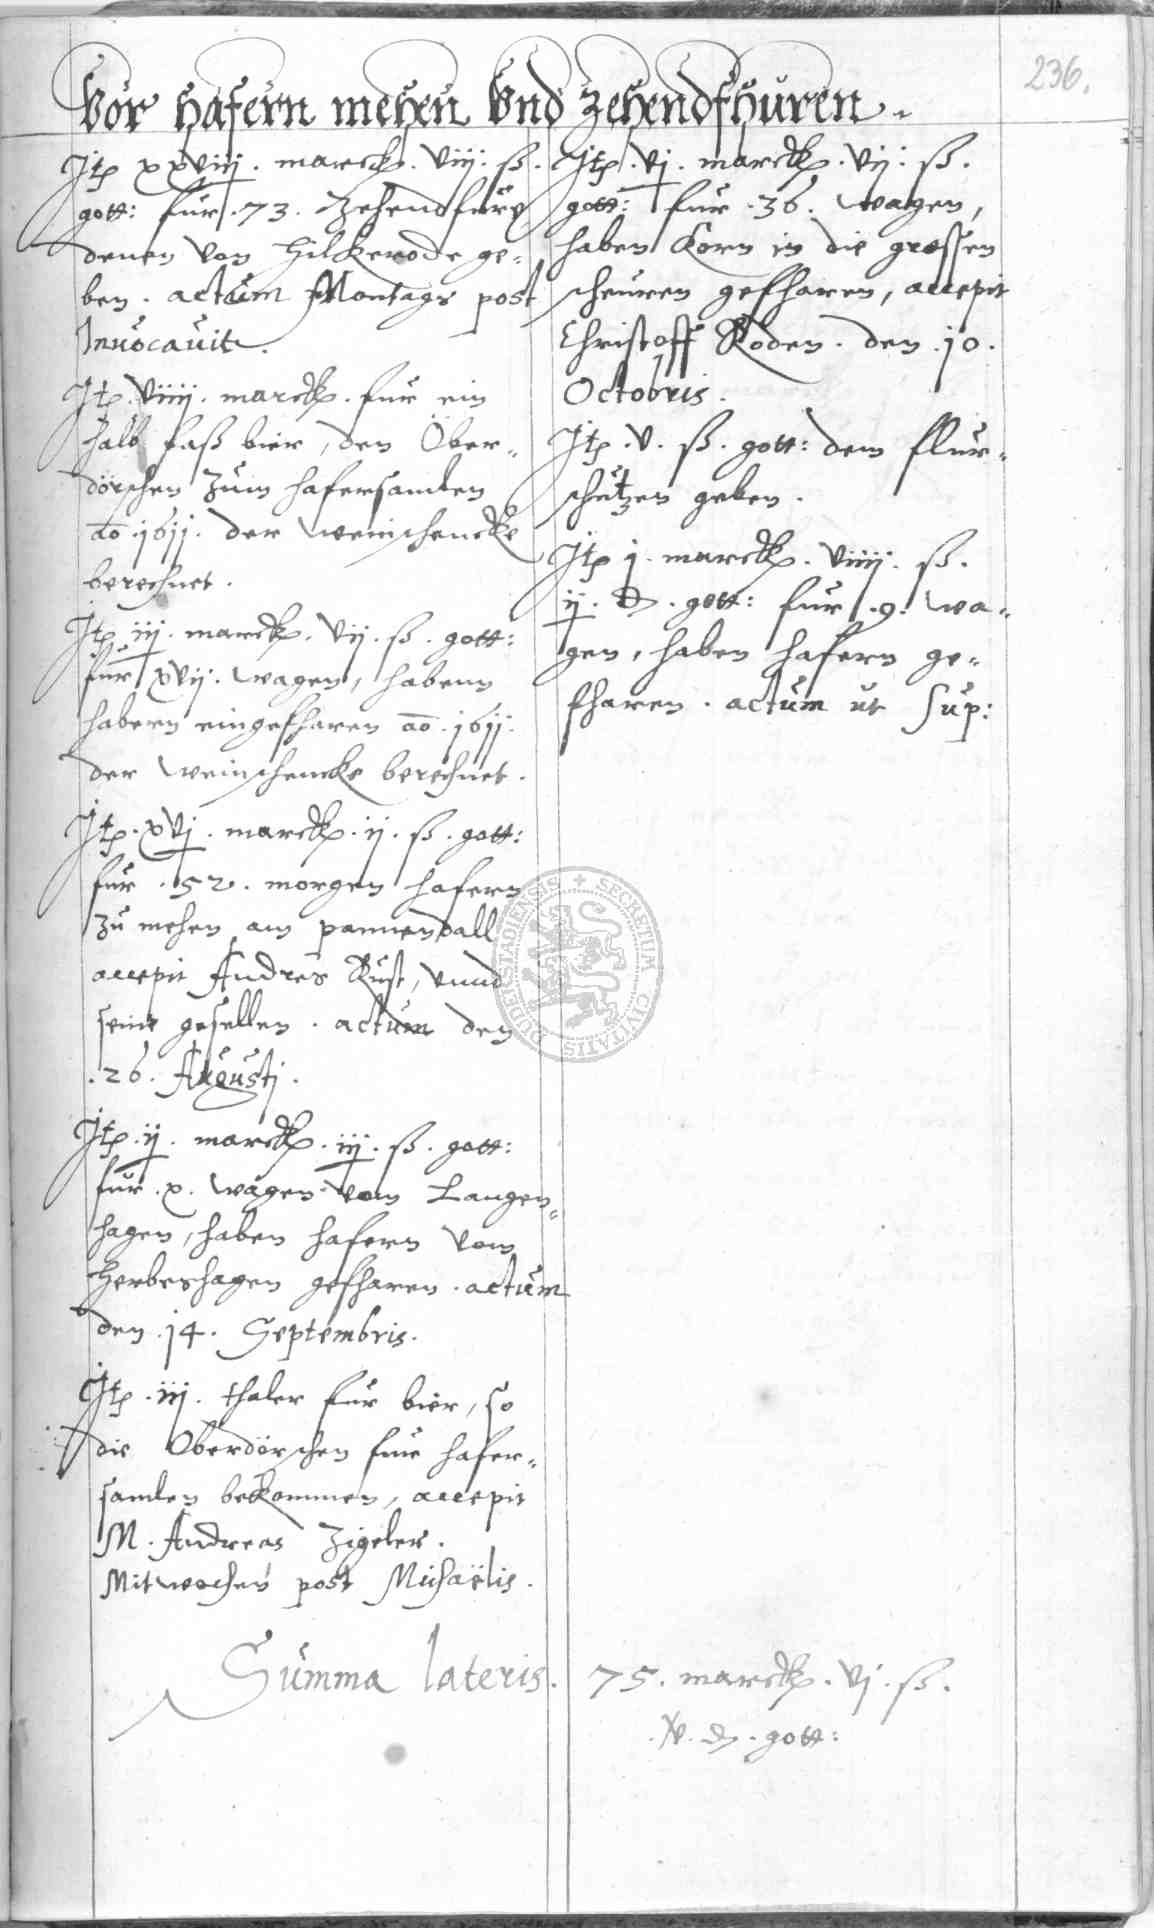 236.
Vor hafern mehen Vnd Zehendfhuren.
Jtp xxviij. marck. viij. ß.
gott: fur .73. Zehendfure
denen von Hilkerode ge=
ben. actum Montags post
Inuocauit.
Jtp. viiij. marck. fur ein
halb faß bier, den Ober=
dörschen zum hafersamlen
ao .1611. der weinschencke
berechnet.
Jtp. iij. marck. vij. ß. gott:
fur xvij. wagen, habenn
habern eingefharen ao .1611.
der weinschencke berechnet.
Jtp. xvj. marck. ij. ß. gott:
fur .52. morgen hafern
zu mehen am pannendall
accepit Andres Rust, vnnd
seine gesellen. actum den
.26. Augusti.
Jtp. ij. marck. iij. ß. gott:
fur .x. wagen vom Langen=
hagen, haben hafern vom
Herbershagen gefharen. actum
den .14. Septembris.
Jtp. iij. thaler fur bier, so
die Oberdörschen fur hafer=
samlen bekommen, accepit
M. Andreas Zigeler.
Mitwochen post Michaëlis.
Jtp. vj. marck. vij. ß.
gott: fur .36. wagen,
haben Korn in die grossen
scheuren gefharen, accepit
Christoff Roden. den .10.
Octobris.
Jtp. v. ß. gott: dem flur=
schutzen geben.
Jtp j. marck. viiij. ß.
ij. d. gott: fur .9. wa=
gen, haben hafern ge=
fharen. actum ut sup:
Summa lateris. 75. marck. vj. ß.
.v. d. gott:
SECRETUM CIVITATIS DUDERSTADIENSIS